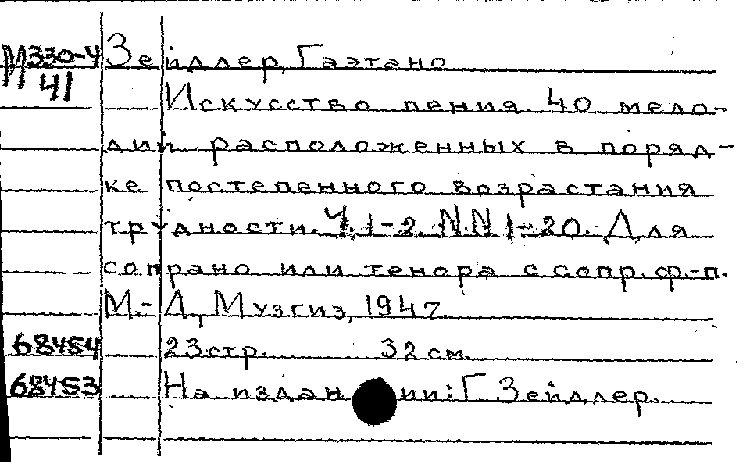 М330-4 Зейдлер, Гаэтано
41 Искусство пения. 40 мело-
дий расположенных в поряд-
ке постепенного возрастания
трудности. Ч.1-2. NN 1-20. Для
сопрано или тенора с сопр. ф.-п.
М.-Л., Музгиз, 1947
68454 23 стр. 32 см.
68453 На издан ии: Г. Зейдлер.